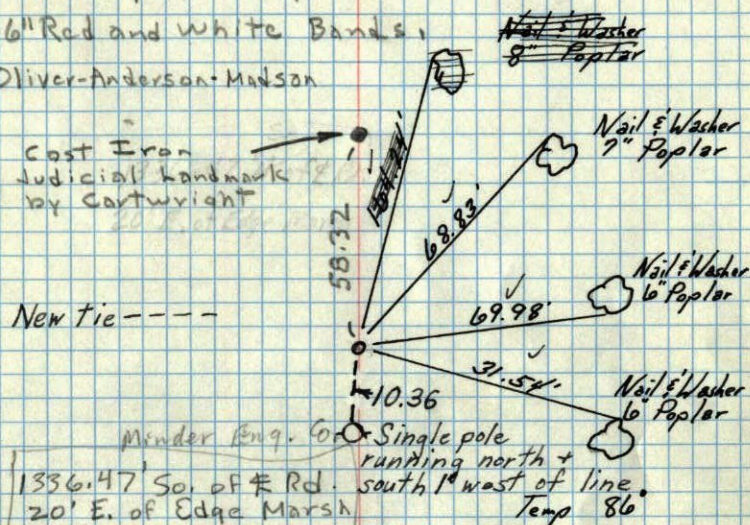 6" Red and White Bands,
Oliver-Anderson-Madson
Nail & Washer
8" Poplar
Cast Iron
Judicial Landmark
by Cartwright
Nail & Washer
7" Poplar
58.32
68.83'
New tie ----
Nail & Washer
6" Poplar
69.98'
31.54'
Nail & Washer
6" Poplar
10.36
Minder Eng. Co.
Single pole
running north &
south 1' west of line
1336.47' So. of ℄ Rd.
20' E. of Edge Marsh
Temp 86°